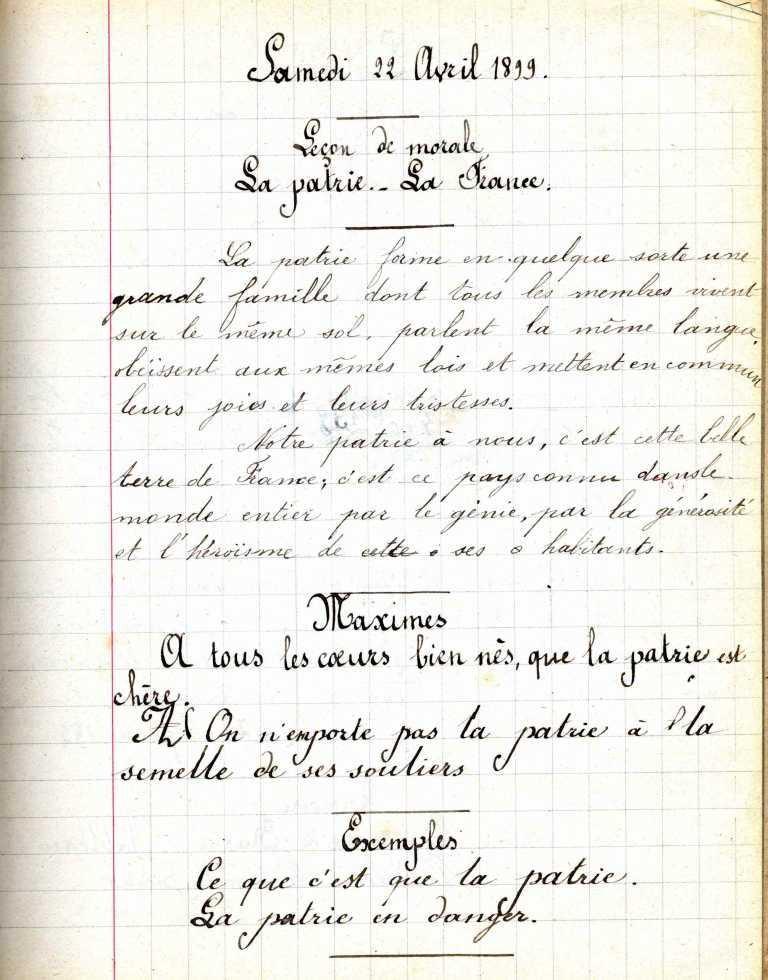 Samedi 22 Avril 1899.
Leçon de morale
La patrie.- La France.
La patrie forme en quelque sorte une
grande famille dont tous les membres vivent
sur le même sol, parlent la même langue,
obéissent aux mêmes lois et mettent en commun
leurs joies et leurs tristesses.
Notre patrie à nous, c'est cette belle
terre de France; c'est ce pays connu dans le
monde entier par le génie, par la générosité
et l'héroïsme de cette ses habitants.
Maximes
A tous les cœurs bien nés, que la patrie est
chère.
On n'emporte pas la patrie à la
semelle de ses souliers
Exemples
Ce que c'est que la patrie.
La patrie en danger.